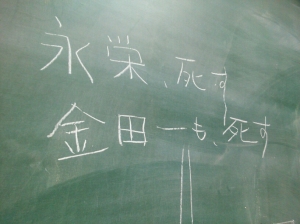 永栄、死す
金田一も、死す